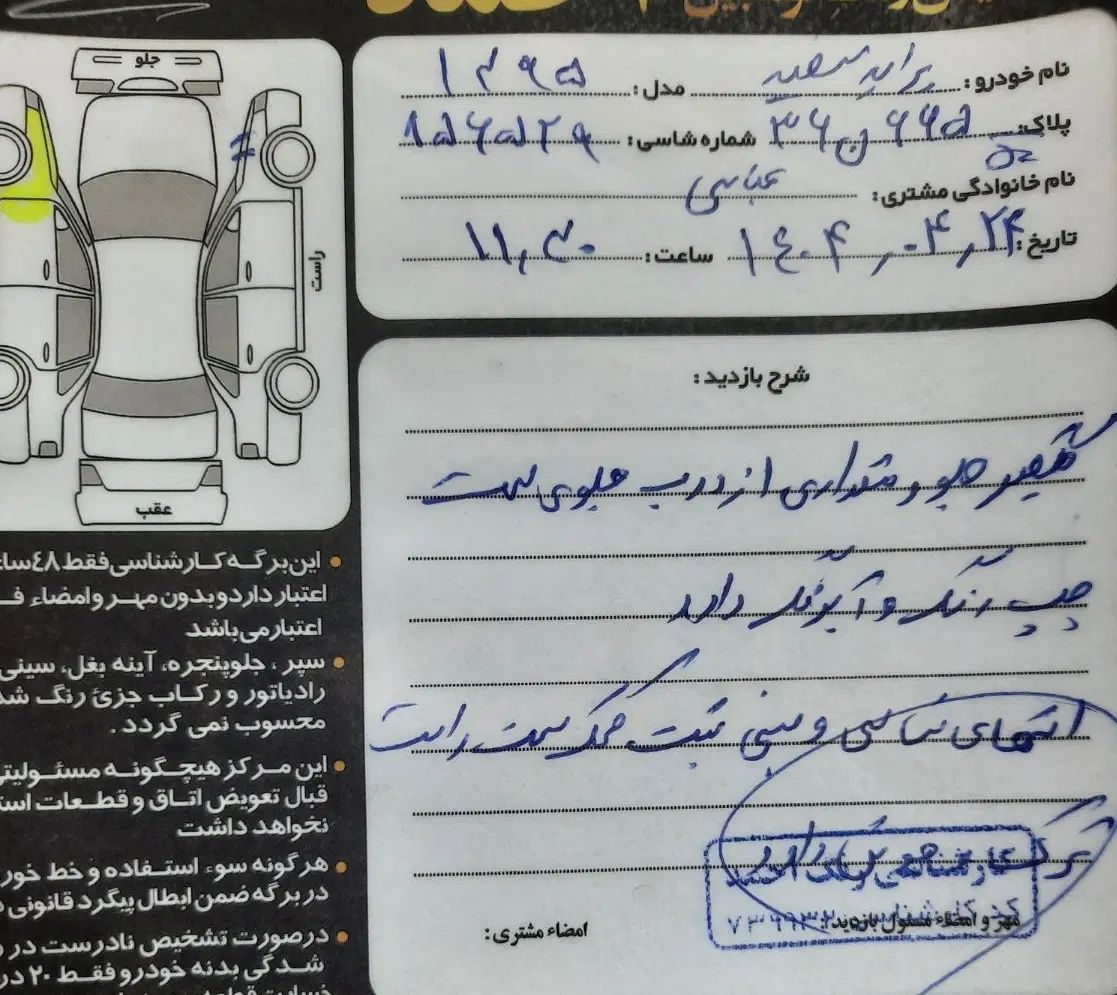 جلو
راست
عقب
نام خودرو: پراید سفید مدل: ۱۳۹۵
پلاک: ۶۶۵ ن ۳۶ شماره شاسی: ۸۵۶۵۲۹
نام خانوادگی مشتری: عباسی
تاریخ: ۱۴۰۴,۰۴,۲۴ ساعت: ۱۱,۳۰
شرح بازدید:
گلگیر جلو و مقداری از درب جلوی سمت
چپ رنگ و آبرنگ دارد
انتهای شاسی و سینی پشت کمک سمت راست
مهر و امضاء مسئول بازدید:
امضاء مشتری:
این برگه کارشناسی فقط ٤٨
اعتبار دارد و بدون مهر و امضاء
اعتبار می باشد
سپر ، جلوپنجره، آینه بغل، سینی
رادیاتور و رکاب جزئ رنگ
محسوب نمی گردد.
این مرکز هیچگونه
قبال تعویض اتاق و قطعات
نخواهد داشت
هرگونه سوء استفاده و خط
در برگه ضمن ابطال پیگرد قانونی
در صورت تشخیص نادرست در
شدگی بدنه خودرو فقط ۲۰